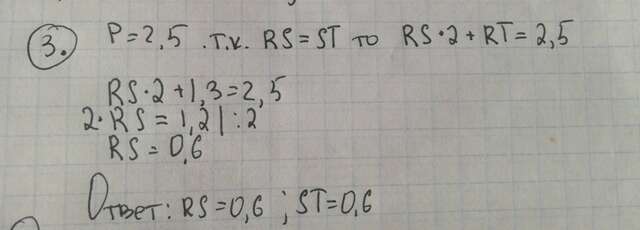 3. P=2,5 . т.к. RS=ST то RS·2+RT=2,5
RS·2+1,3=2,5
2·RS=1,2|:2
RS=0,6
Ответ: RS=0,6 ; ST=0,6